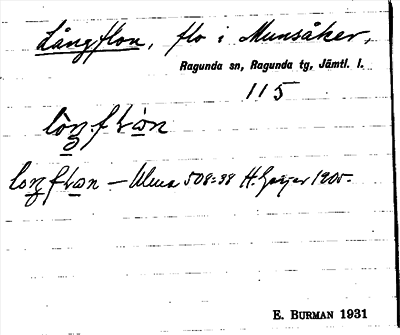 Långflon, flo i Munsåker,
Ragunda sn, Ragunda tg, Jämtl. l.
115
508:38 H. Geijer 1900.
E. BURMAN 1931